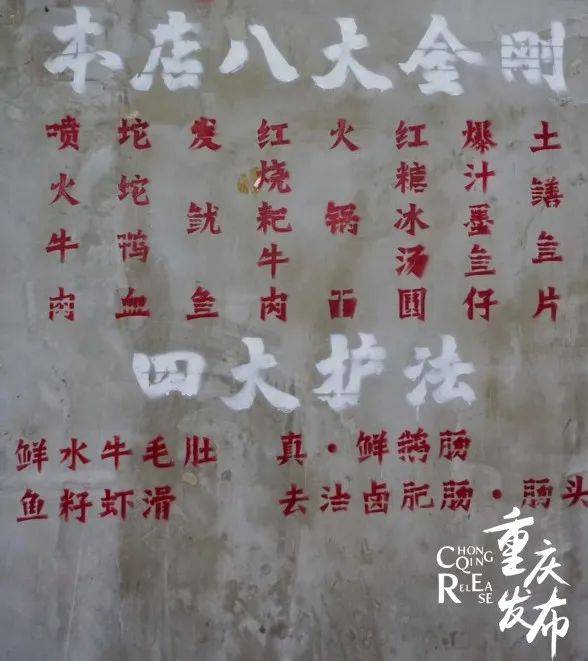 本店八大金刚
喷火牛肉
坨坨鸭血
发鱿鱼
红烧粑牛肉
火锅面
红糖冰汤圆
爆汁墨鱼仔
土鳝鱼片
四大护法
鲜水牛毛肚
真·鲜鹅肠
鱼籽虾滑
去油卤肥肠·肠头
CHONGQING
RELEASE
重庆发布